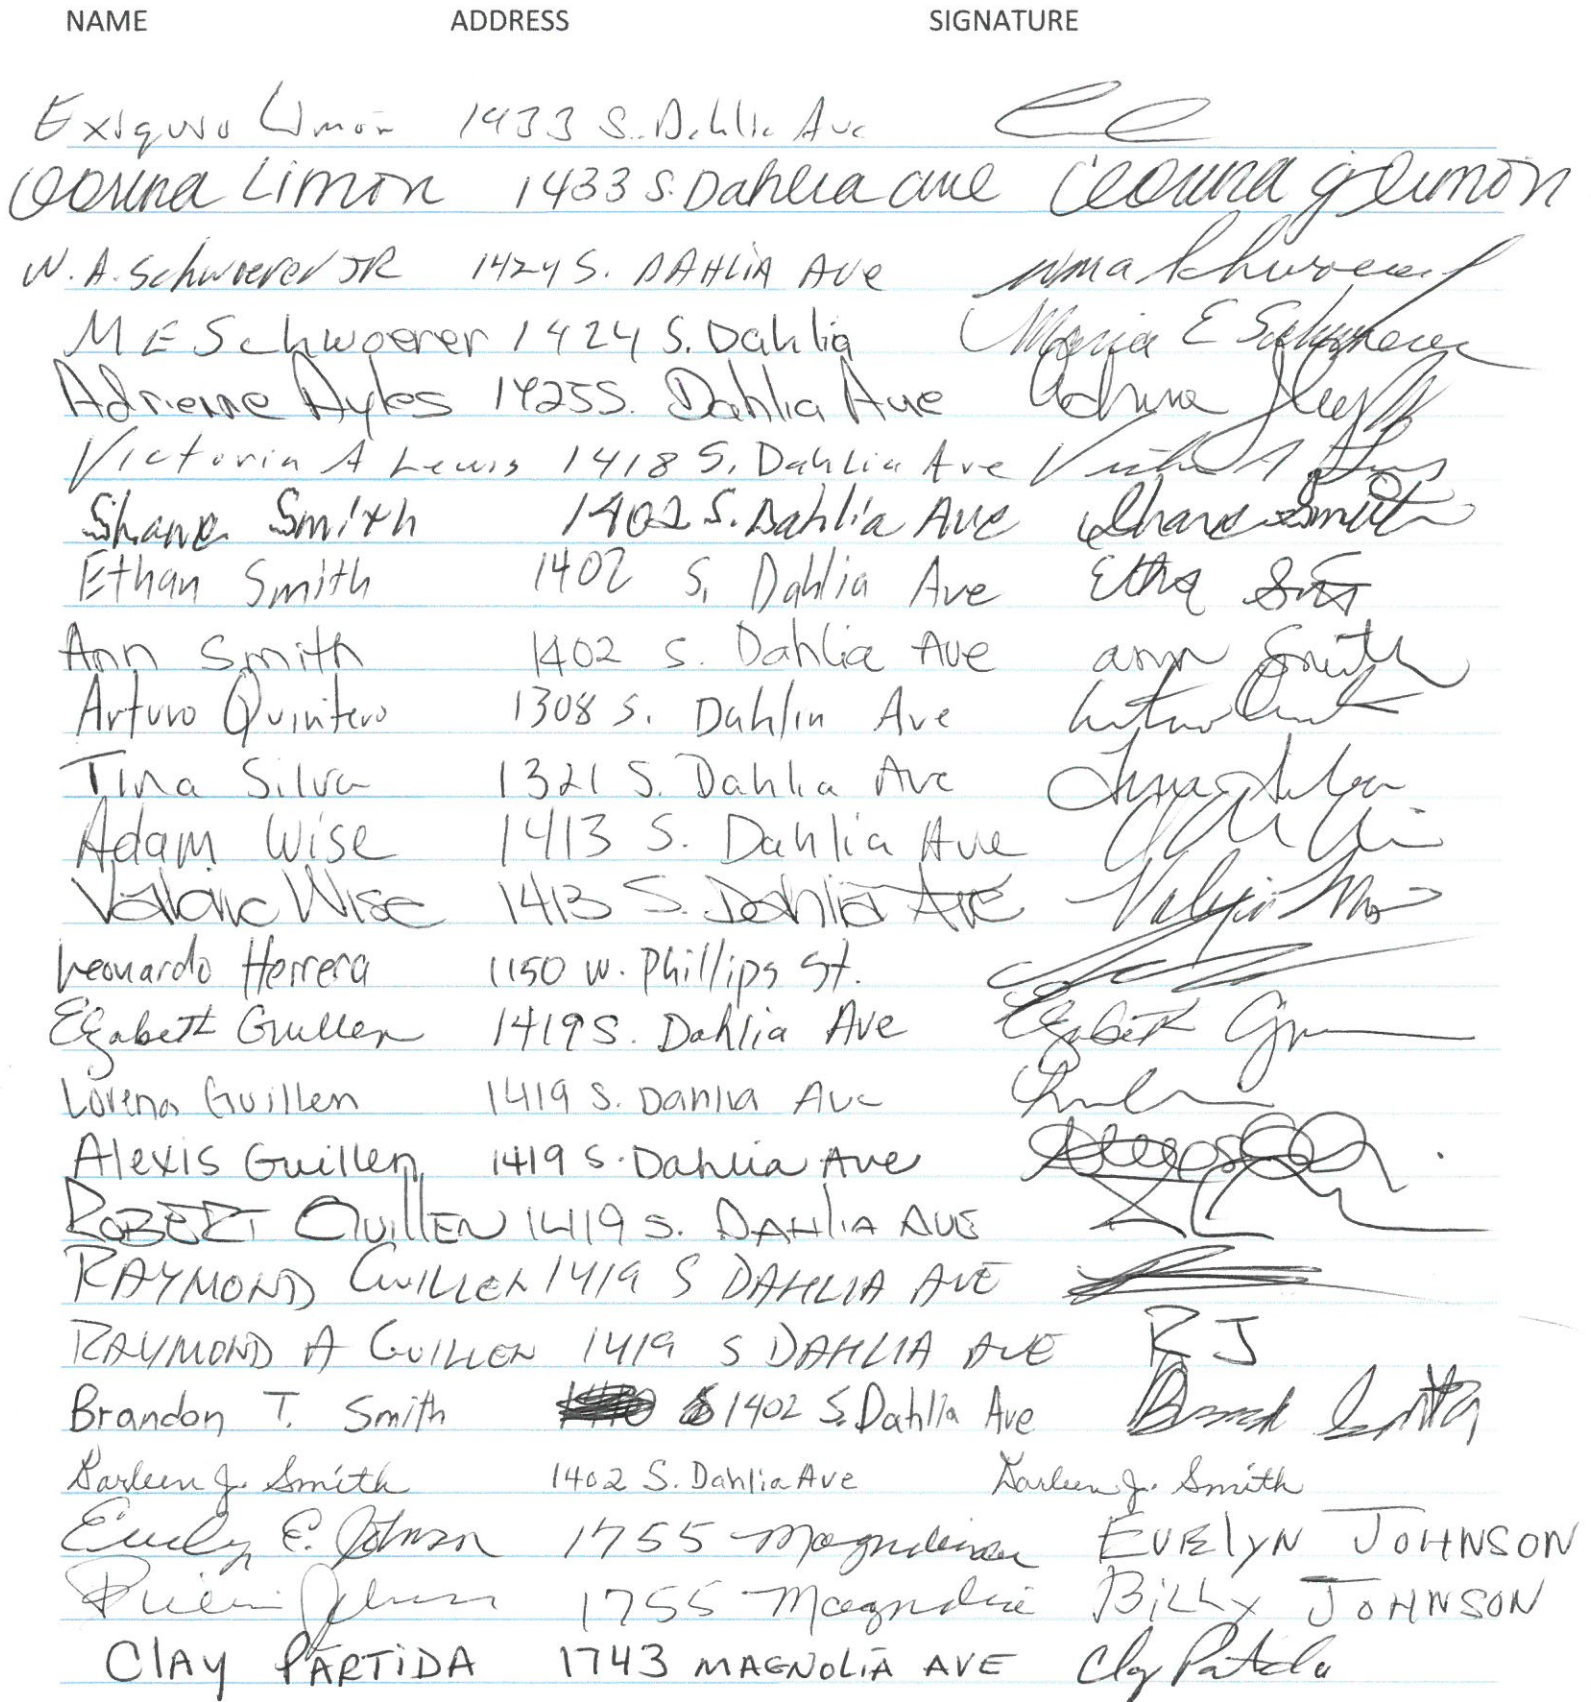 NAME ADDRESS SIGNATURE
Exiquio Limon 1433 S. Dahlia Ave
Corina Limon 1433 S. Dahlia ave Corina g Limon
W. A. Schwoerer JR 1424 S. DAHLIA Ave
M E Schwoerer 1424 S. Dahlia Maria E Schwoerer
Adrienne Ayles 1425 S. Dahlia Ave
Victoria A Lewis 1418 S. Dahlia Ave Victoria A Lewis
Shane Smith 1402 S. Dahlia Ave Shane Smith
Ethan Smith 1402 S. Dahlia Ave Ethan Smith
Ann Smith 1402 S. Dahlia Ave ann Smith
Arturo Quintero 1308 S. Dahlia Ave
Tina Silva 1321 S. Dahlia Ave Tina Silva
Adam Wise 1413 S. Dahlia Ave
Valarie Wise 1413 S. Dahlia Ave
Leonardo Herrera 1150 W. Phillips St.
Elizabeth Guillen 1419 S. Dahlia Ave
Lorena Guillen 1419 S. Dahlia Ave
Alexis Guillen 1419 S. Dahlia Ave
ROBERT GUILLEN 1419 S. DAHLIA AVE
RAYMOND GUILLEN 1419 S DAHLIA AVE
RAYMOND A GUILLEN 1419 S DAHLIA AVE RJ
Brandon T. Smith 1402 S. Dahlia Ave
Darleen J. Smith 1402 S. Dahlia Ave Darleen J. Smith
E. Johnson 1755 EVELYN JOHNSON
Johnson 1755 Magnolia BILLY JOHNSON
CLAY PARTIDA 1743 MAGNOLIA AVE Clay Partida